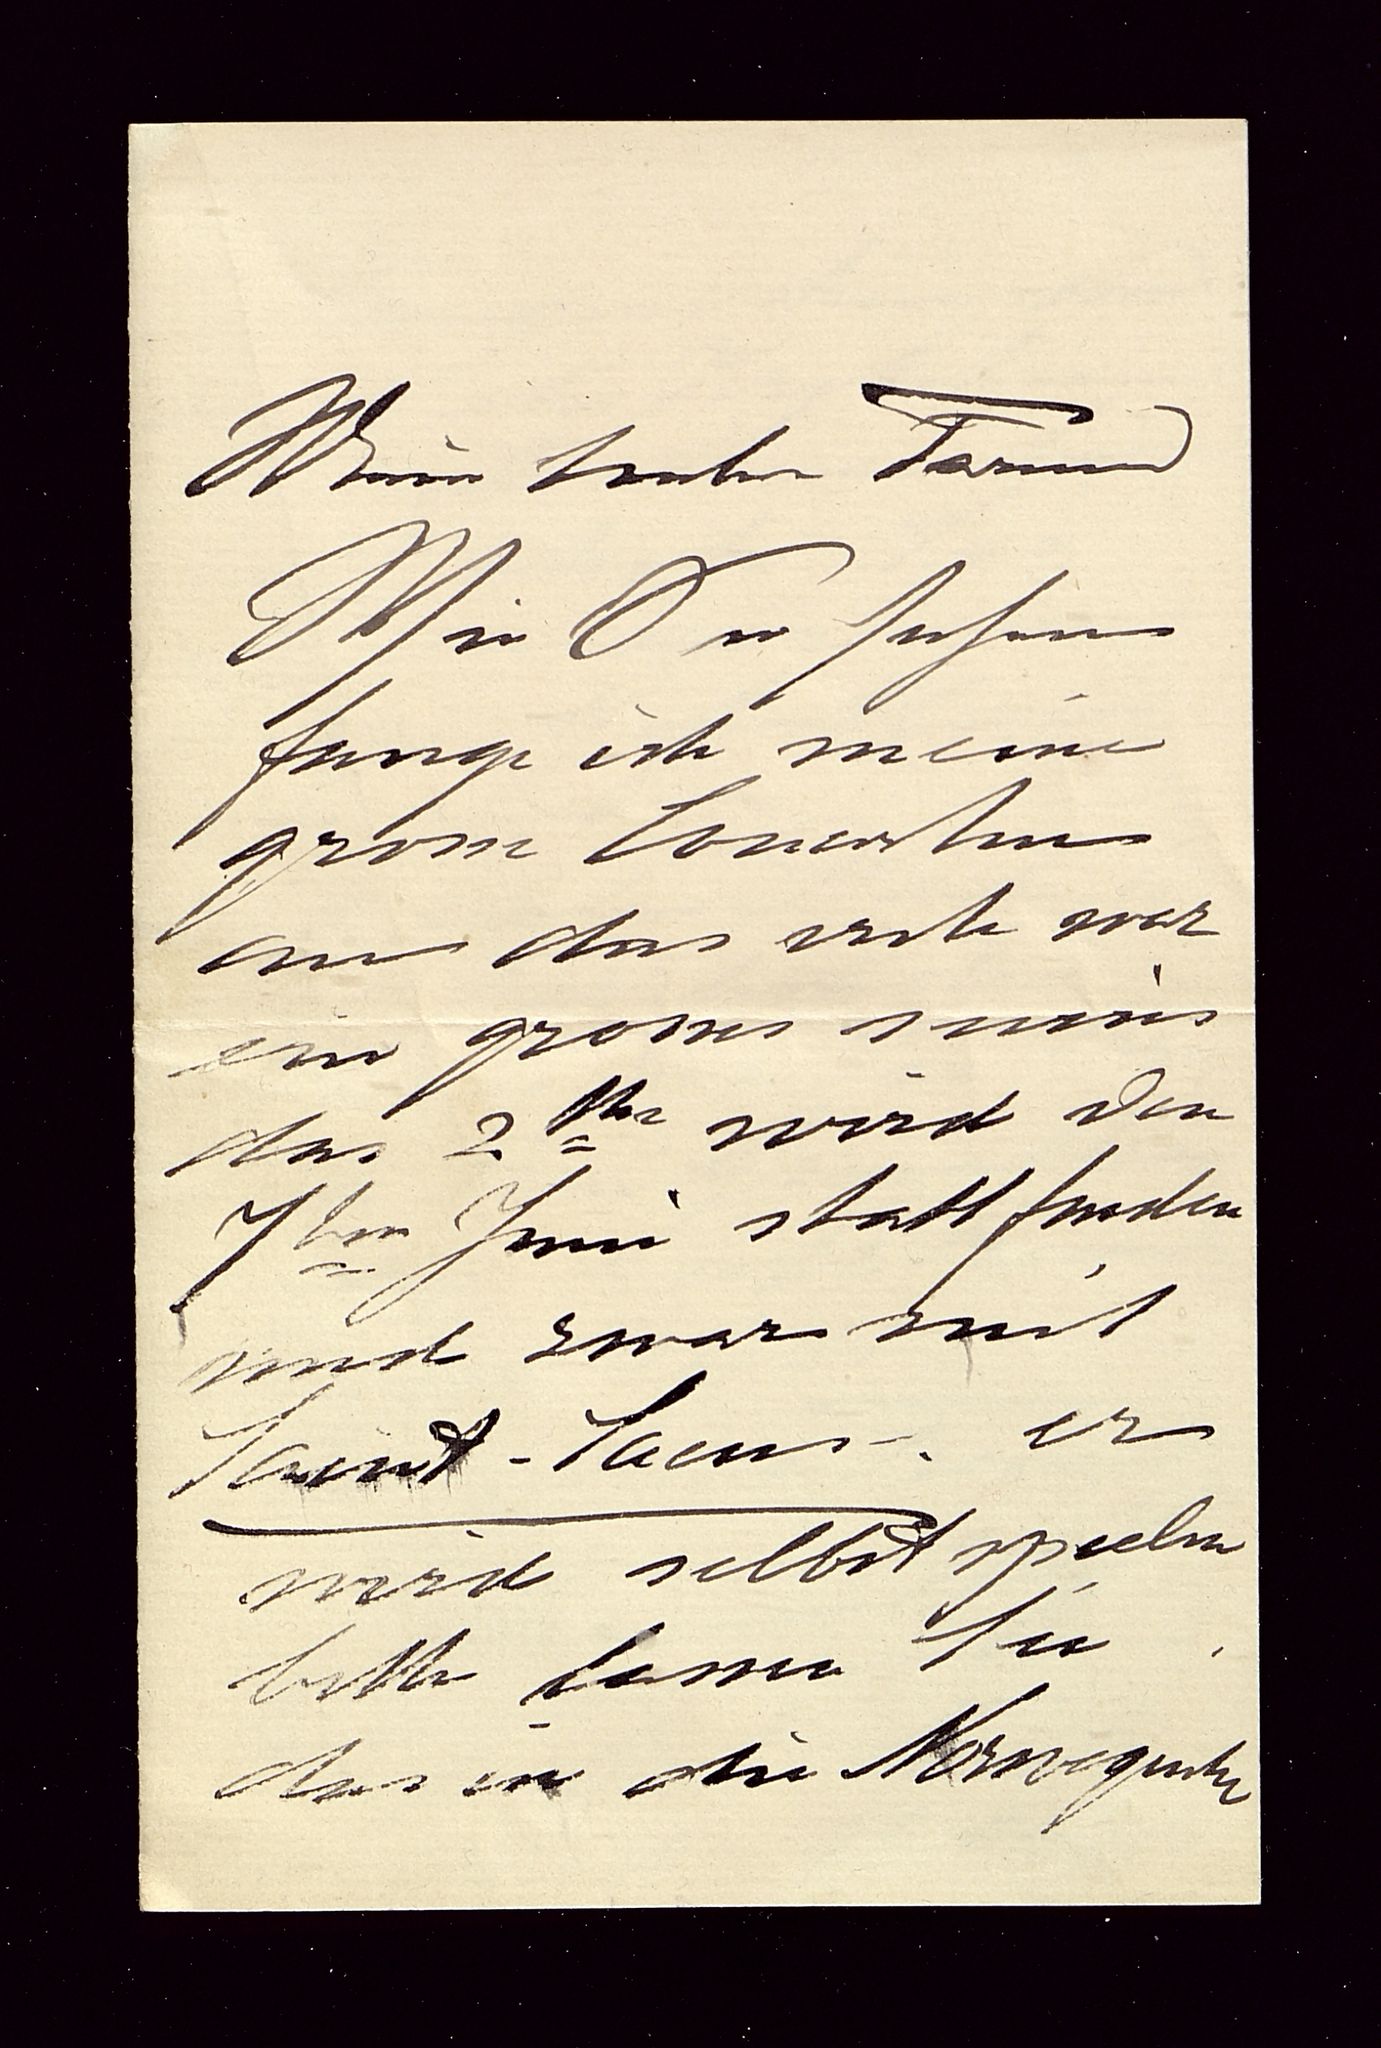 Mein lieber Freund
Wie Sie sehen
fange ich meine
grosse Concerten
an das erste war
ein grosses succès
das 2te wird den
7ten Juni stattfinden
und zwar mit
Saint-Saens. er
wird selbst spielen
bitte lassen Sie
das in die Norwegische